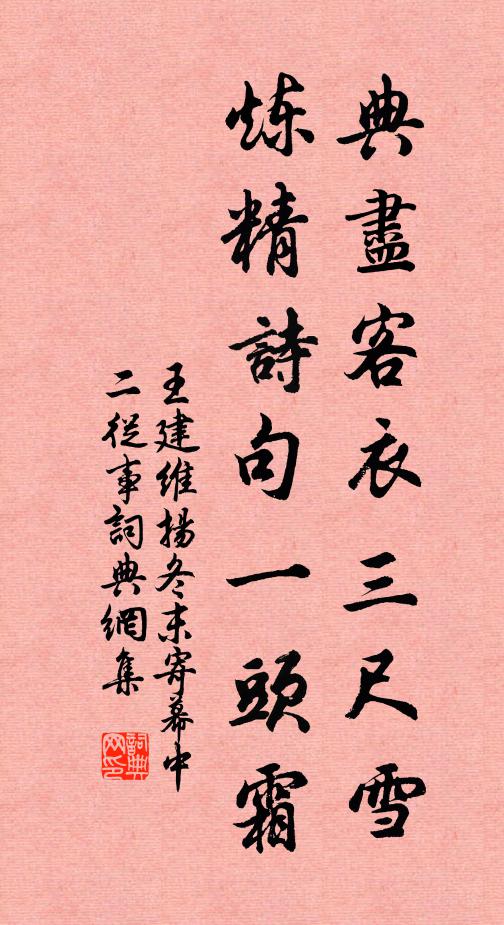 典盡客衣三尺雪
炼精詩句一頭霜
王建維揚冬末寄幕中
二從事詞典網集
詞典
网印